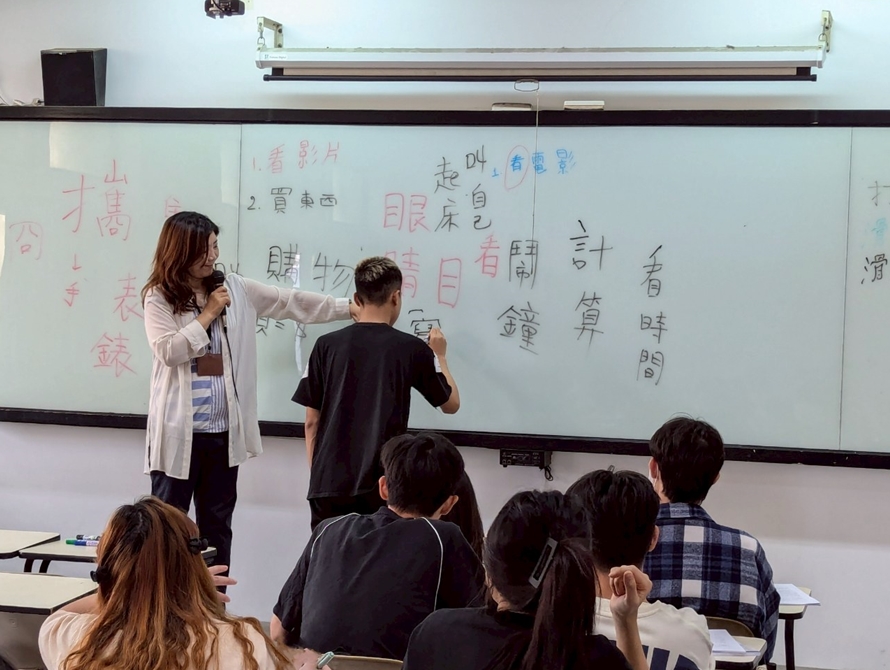 囧
山
攜
扌
手
表
錶
1.看影片
2.買東西
購物
眼睛
目
看
起床
叫自己
1.看電影
鬧鐘
計算
看時間
滑